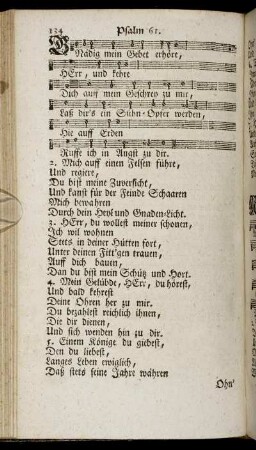 134 Psalm 61.
GNädig mein Gebet erhört,
HErr, und kehre
Dich auff mein Geschrey zu mir,
Laß dir's ein Sühn-Opfer werden,
Hie auff Erden
Ruffe ich in Angst zu dir.
2. Mich auff einen Felsen führe,
Und regiere,
Du bist meine Zuversicht,
Und kanst für der Feinde Schaaren
Mich bewahren
Durch dein Heyl und Gnaden-Licht.
3. HErr, du wollest meiner schonen,
Ich wil wohnen
Stets in deiner Hütten fort,
Unter deinen Fitt'gen trauen,
Auff dich bauen,
Dan du bist mein Schütz und Hort.
4. Mein Gelübde, HErr, du hörest,
Und bald kehrest
Deine Ohren her zu mir.
Du bezahlest reichlich ihnen,
Die dir dienen,
Und sich wenden hin zu dir.
5. Einem Könige du giebest,
Den du liebest,
Langes Leben ewiglich,
Daß stets seine Jahre währen
Ohn'